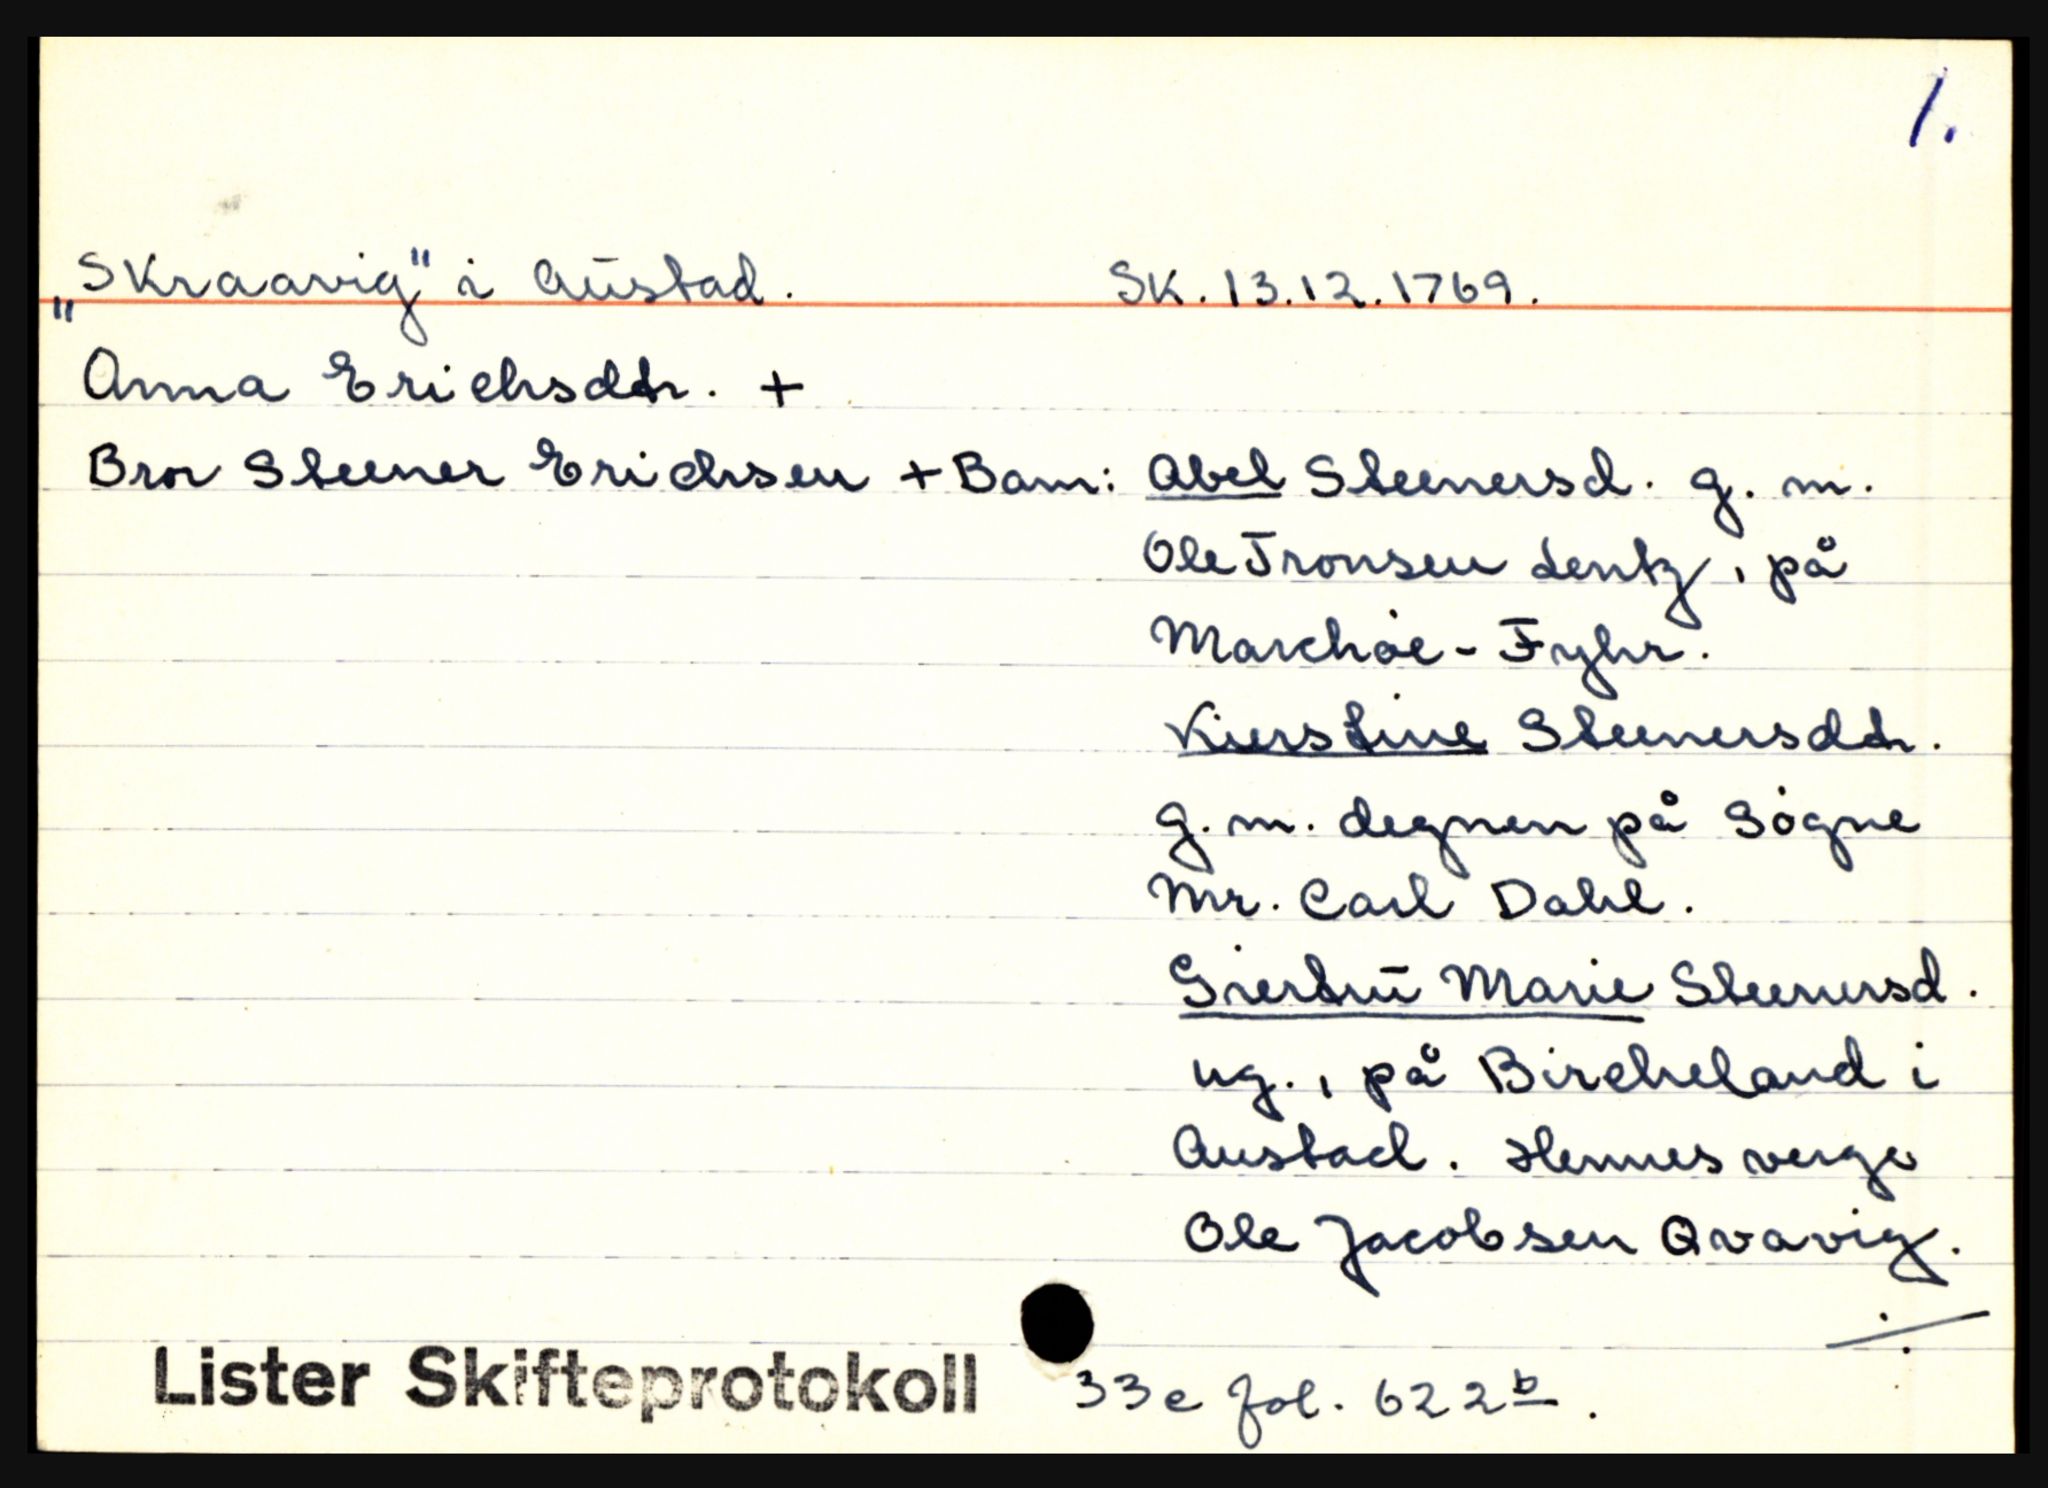 1.
„Skraavig" i Austad. Sk. 13.12.1769.
Anna Erichsdtr. +
Bror Steener Erichsen + Barn: Abel Steenersd. g. m.
Ole Tronsen Lentz, på
Marchøe - Fyhr.
Kierstine Steenersdtr.
g. m. degnen på Søgne
Mr. Carl Dahl.
Giertru Marie Steenersd.
ug., på Bircheland i
Austad. Hennes verge
Ole Jacobsen Qvavig.
Lister Skifteprotokoll 33c fol. 622b.